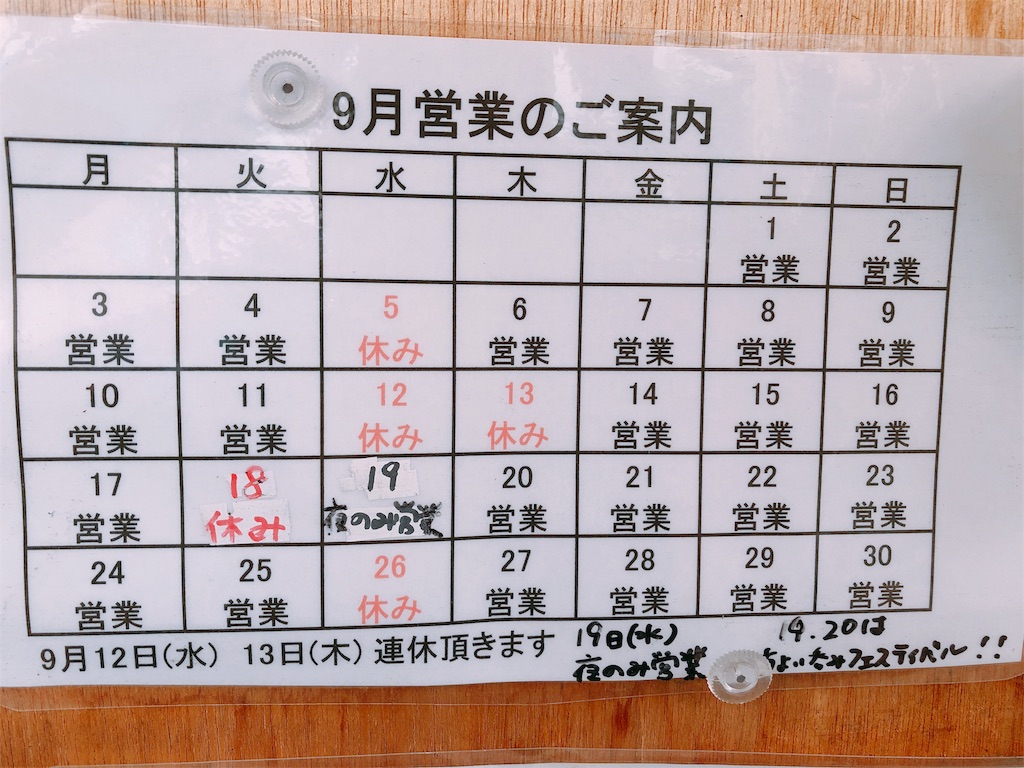 9月営業のご案内
月 火 水 木 金 土 日
1 2
営業 営業
3 4 5 6 7 8 9
営業 営業 休み 営業 営業 営業 営業
10 11 12 13 14 15 16
営業 営業 休み 休み 営業 営業 営業
17 18 19 20 21 22 23
営業 休み 夜のみ営業 営業 営業 営業 営業
24 25 26 27 28 29 30
営業 営業 休み 営業 営業 営業 営業
9月12日(水) 13日(木)連休頂きます
19日(水)
夜のみ営業
19.20は
ちょいちゃフェスティバル!!